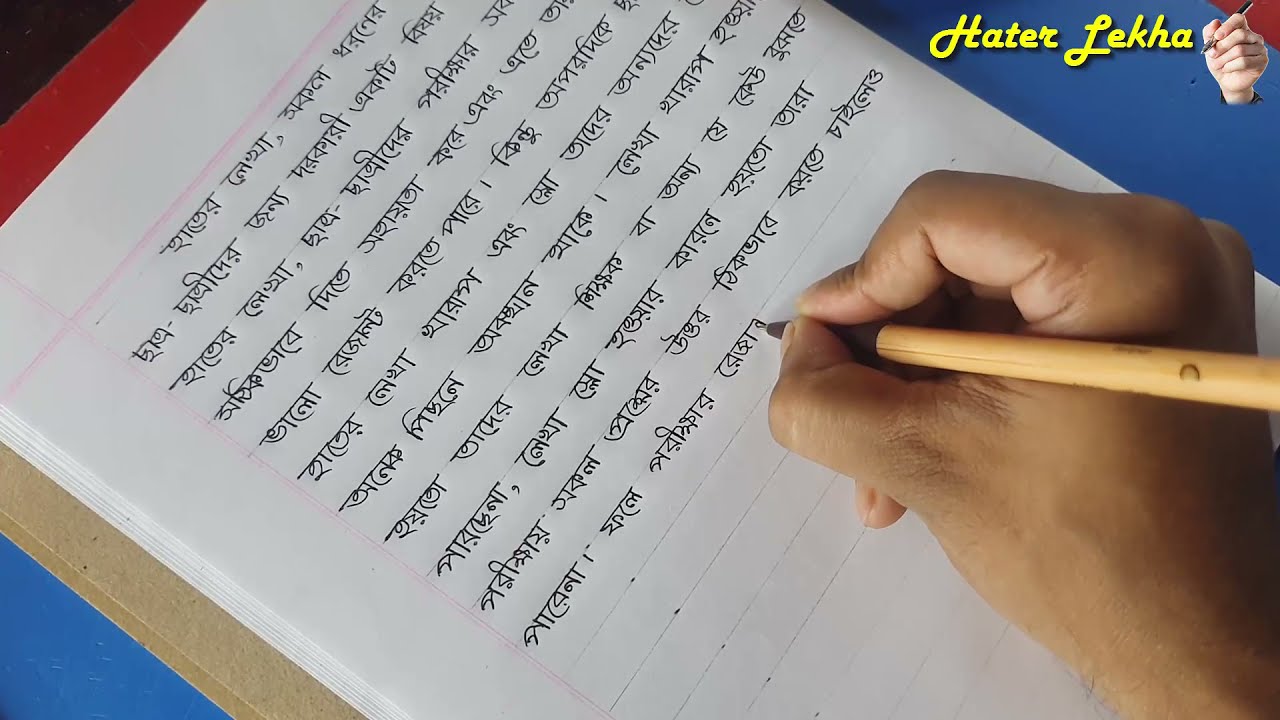 Hater Lekha
হাতের লেখা, সকল ধরনের
ছাত্র-ছাত্রীদের জন্য দরকারী একটি বিষয়
হাতের লেখা, ছাত্র-ছাত্রীদের পরীক্ষার সব
সঠিকভাবে দিতে সহায়তা করে এবং এতে
ভালো রেজাল্ট করতে পারে। কিন্তু অপরদিকে
হাতের লেখা খারাপ এবং স্লো তাদের অন্যদের
অনেক পিছনে অবস্থান থাকে। লেখা খারাপ হওয়া
হয়তো তাদের লেখা শিক্ষক বা অন্য যে কেউ বুঝতে
পারছেনা, লেখা স্লো হওয়ার কারণে হয়তো তারা
পরীক্ষায় সকল প্রশ্নের উত্তর ঠিকভাবে করতে চাইলেও
পারেনা। ফলে পরীক্ষার রেজাল